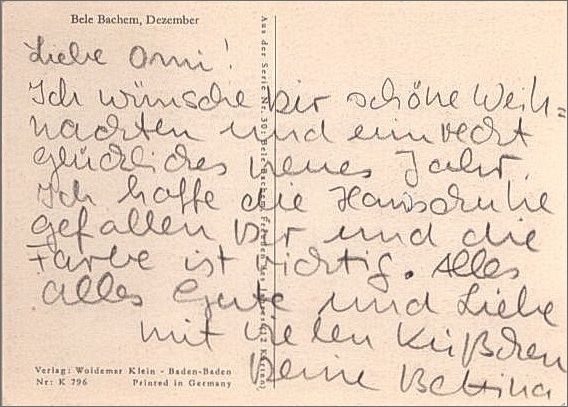 Bele Bachem, Dezember
Liebe Omi!
Ich wünsche Dir schöne Weih=
nachten und ein recht
glückliches neues Jahr.
Ich hoffe die Hausschuhe
gefallen Dir und die
Farbe ist richtig. Alles
alles Gute und Liebe
mit vielen Küßchen
Deine Bettina
Aus der Serie Nr. 301: Bele Bachem, Freuden des Jahres (12 Karten)
Verlag: Woldemar Klein - Baden-Baden
Nr: K 796 Printed in Germany